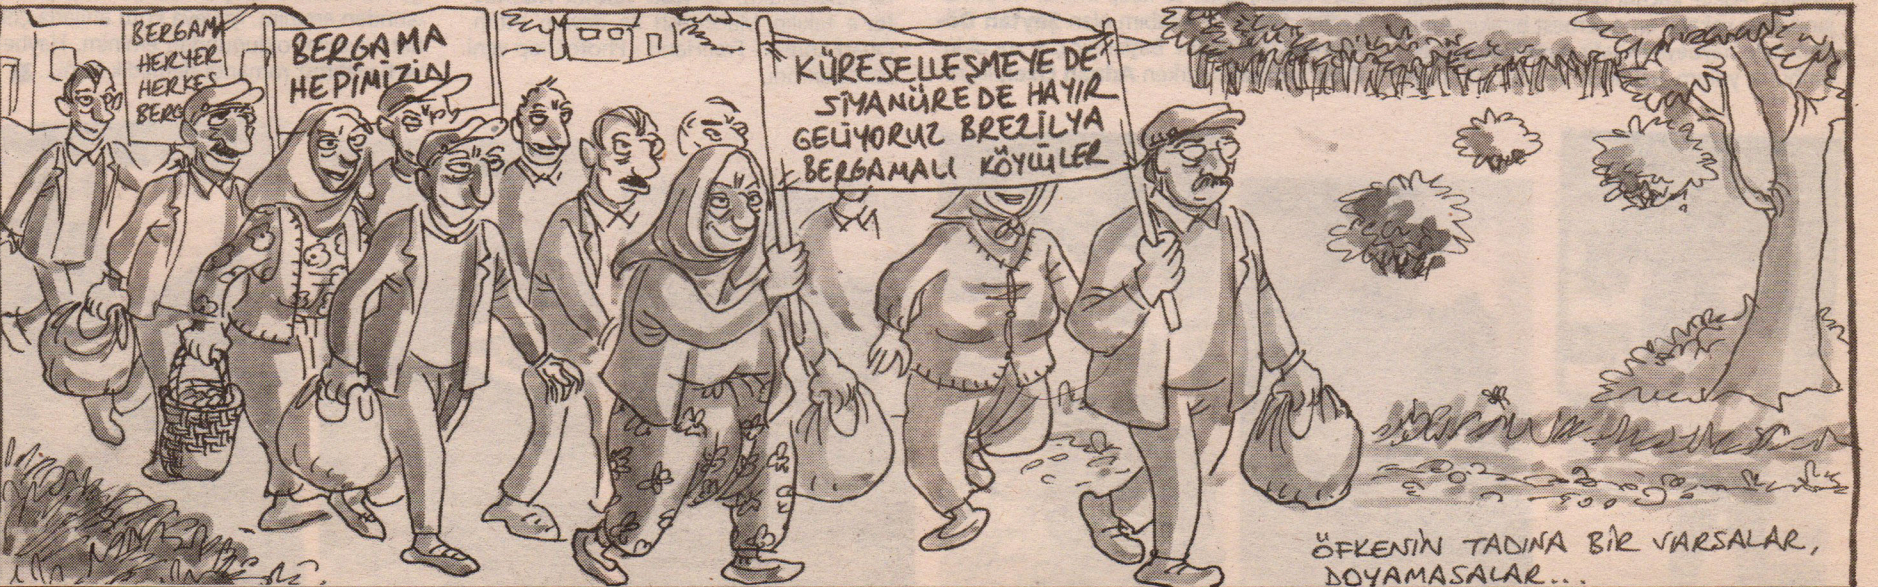 BERGAMA
HERYER
HERKES
BERGAMA
HEPİMİZİN
KÜRESELLEŞMEYE DE
SİYANÜRE DE HAYIR
GELİYORUZ BREZİLYA
BERGAMALI KÖYLÜLER
ÖFKENİN TADINA BİR VARSALAR,
DOYAMASALAR...